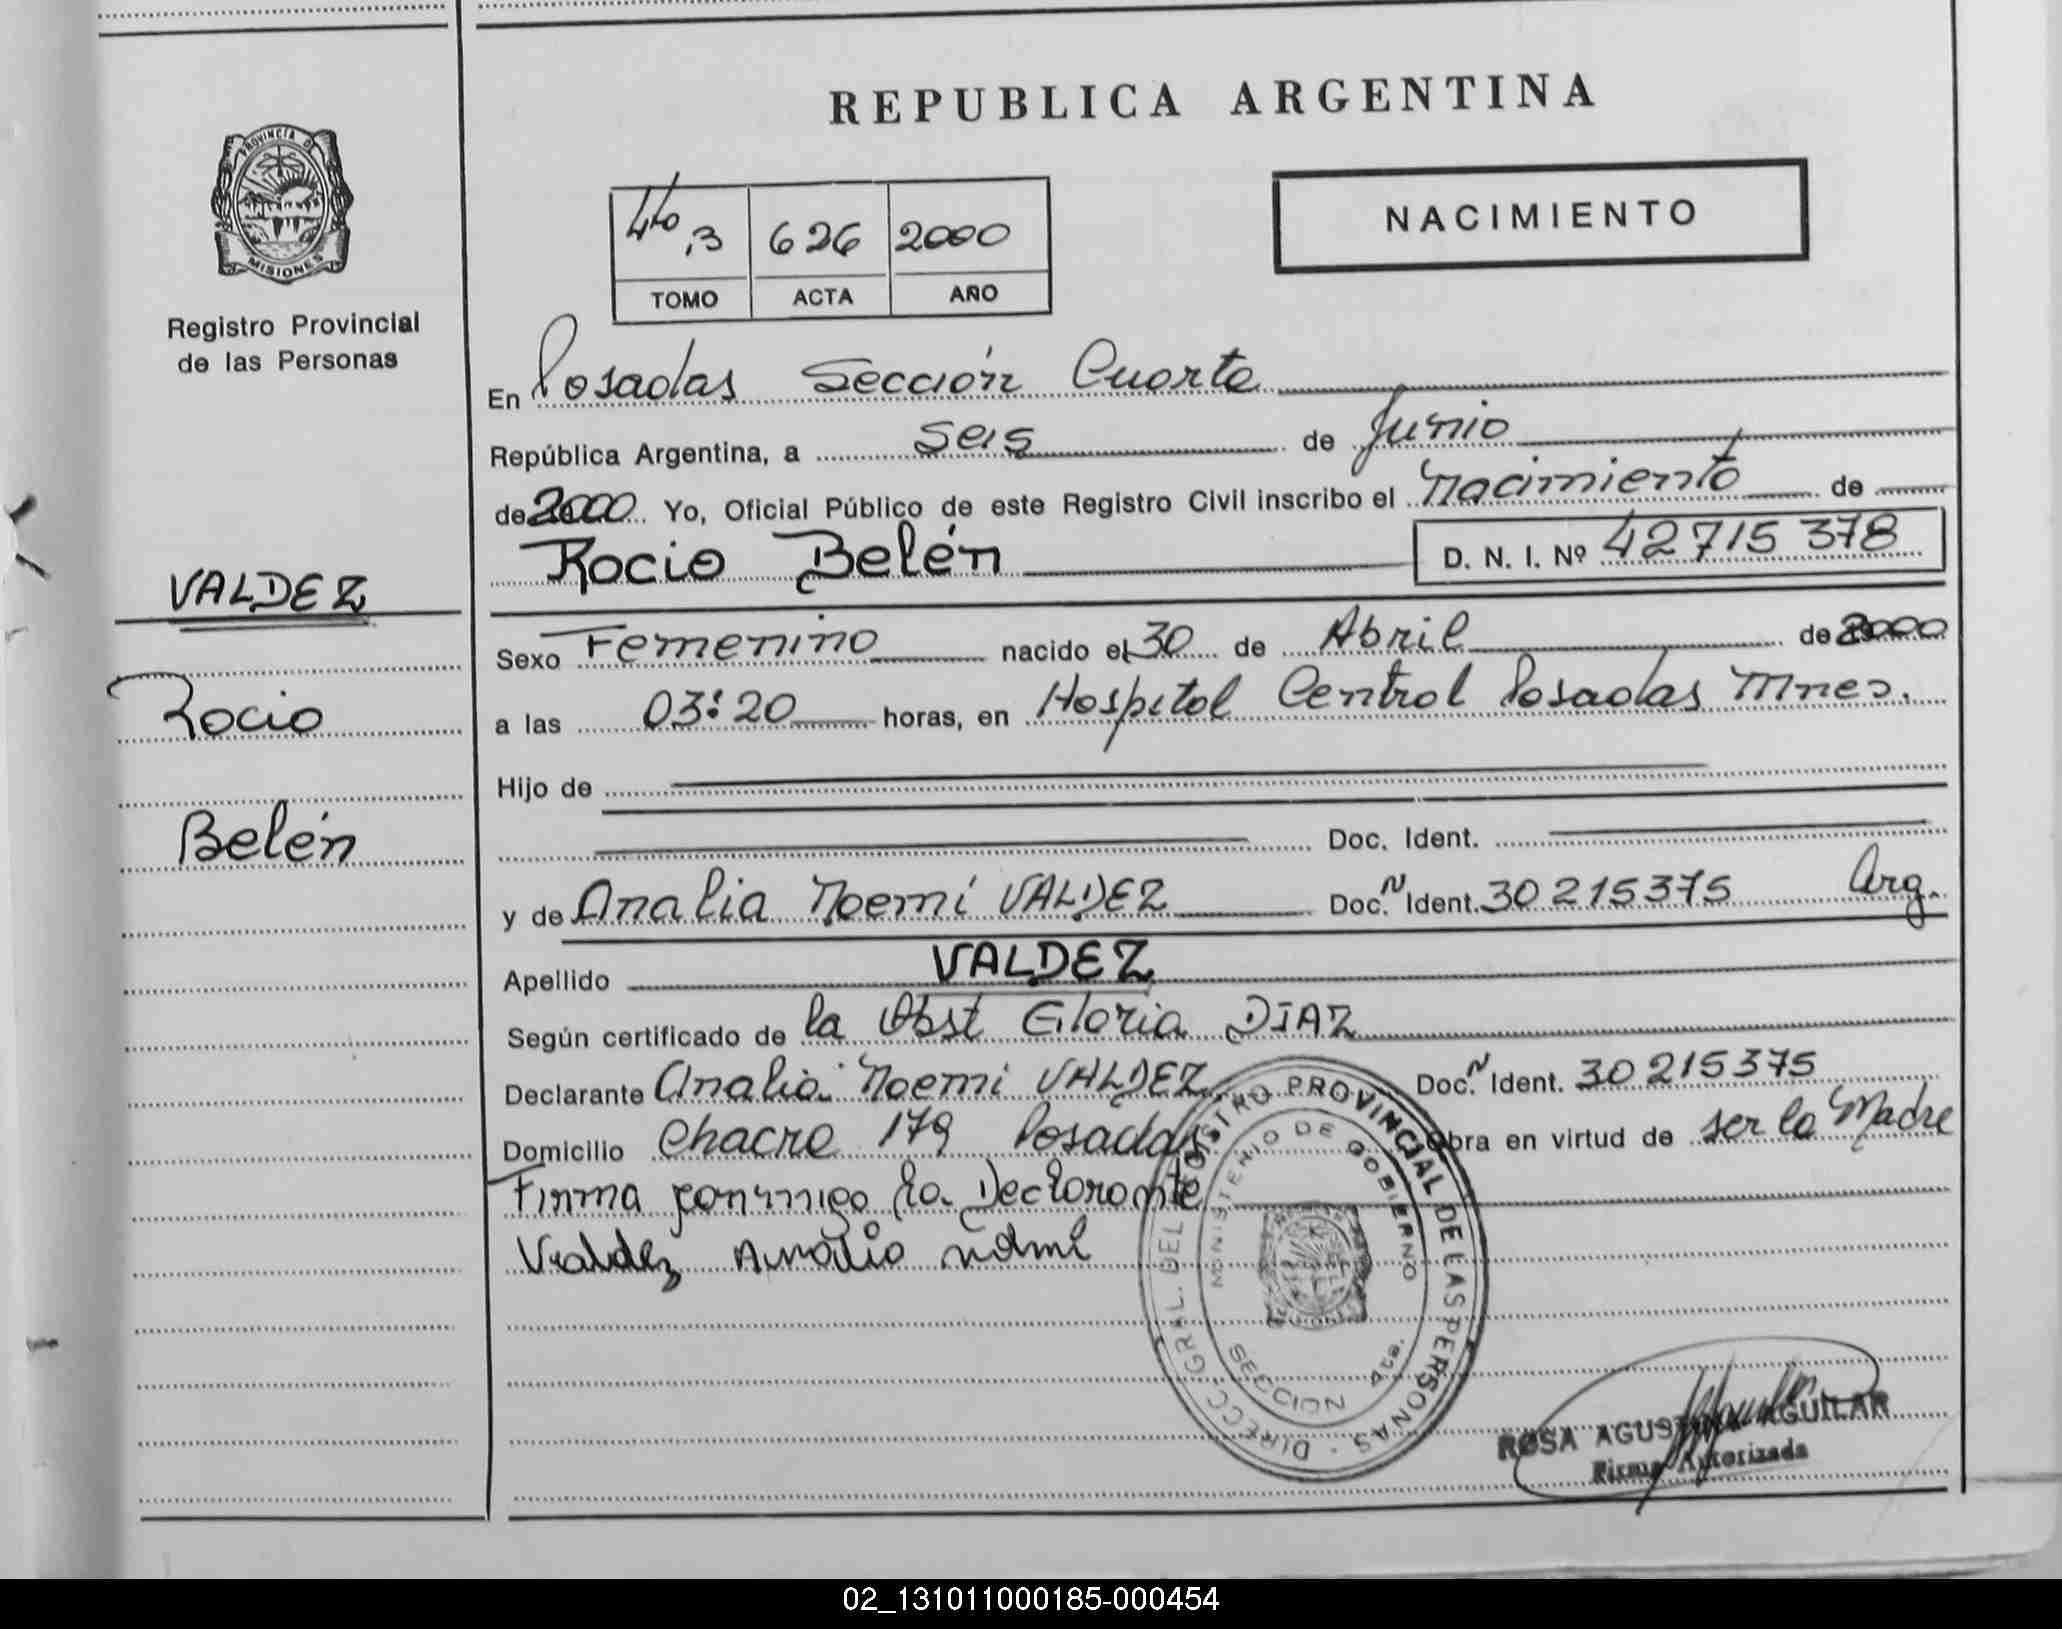 REPUBLICA ARGENTINA
PROVINCIA DE
MISIONES
Registro Provincial
de las Personas
4to ,3 626 2000
TOMO ACTA AÑO
NACIMIENTO
En Posadas Sección Cuarta
República Argentina, a seis de Junio
de 2000 Yo, Oficial Público de este Registro Civil inscribo el nacimiento de
Rocio Belén D. N. I. Nº 42715 378
VALDEZ
Rocio
Belén
Sexo Femenino nacido el 30 de Abril de 2000
a las 03:20 horas, en Hospital Central Posadas Mnes.
Hijo de
Doc. Ident.
y de Analia Noemí VALDEZ Doc. N Ident. 30 215375 Arg.
Apellido VALDEZ
Según certificado de la Obst Gloria DIAZ
Declarante Analia Noemi VALDEZ Doc. N Ident. 30 215375
Domicilio Chacra 179 Posadas Obra en virtud de ser la Madre
Firma conmigo la Declarante
Valdez
DIRECC. GRAL. DEL REGISTRO PROVINCIAL DE LAS PERSONAS
MINISTERIO DE GOBIERNO
SECCION 4ta.
ROSA AGUSTINA AGUILAR
Firma Autorizada
02_131011000185-000454